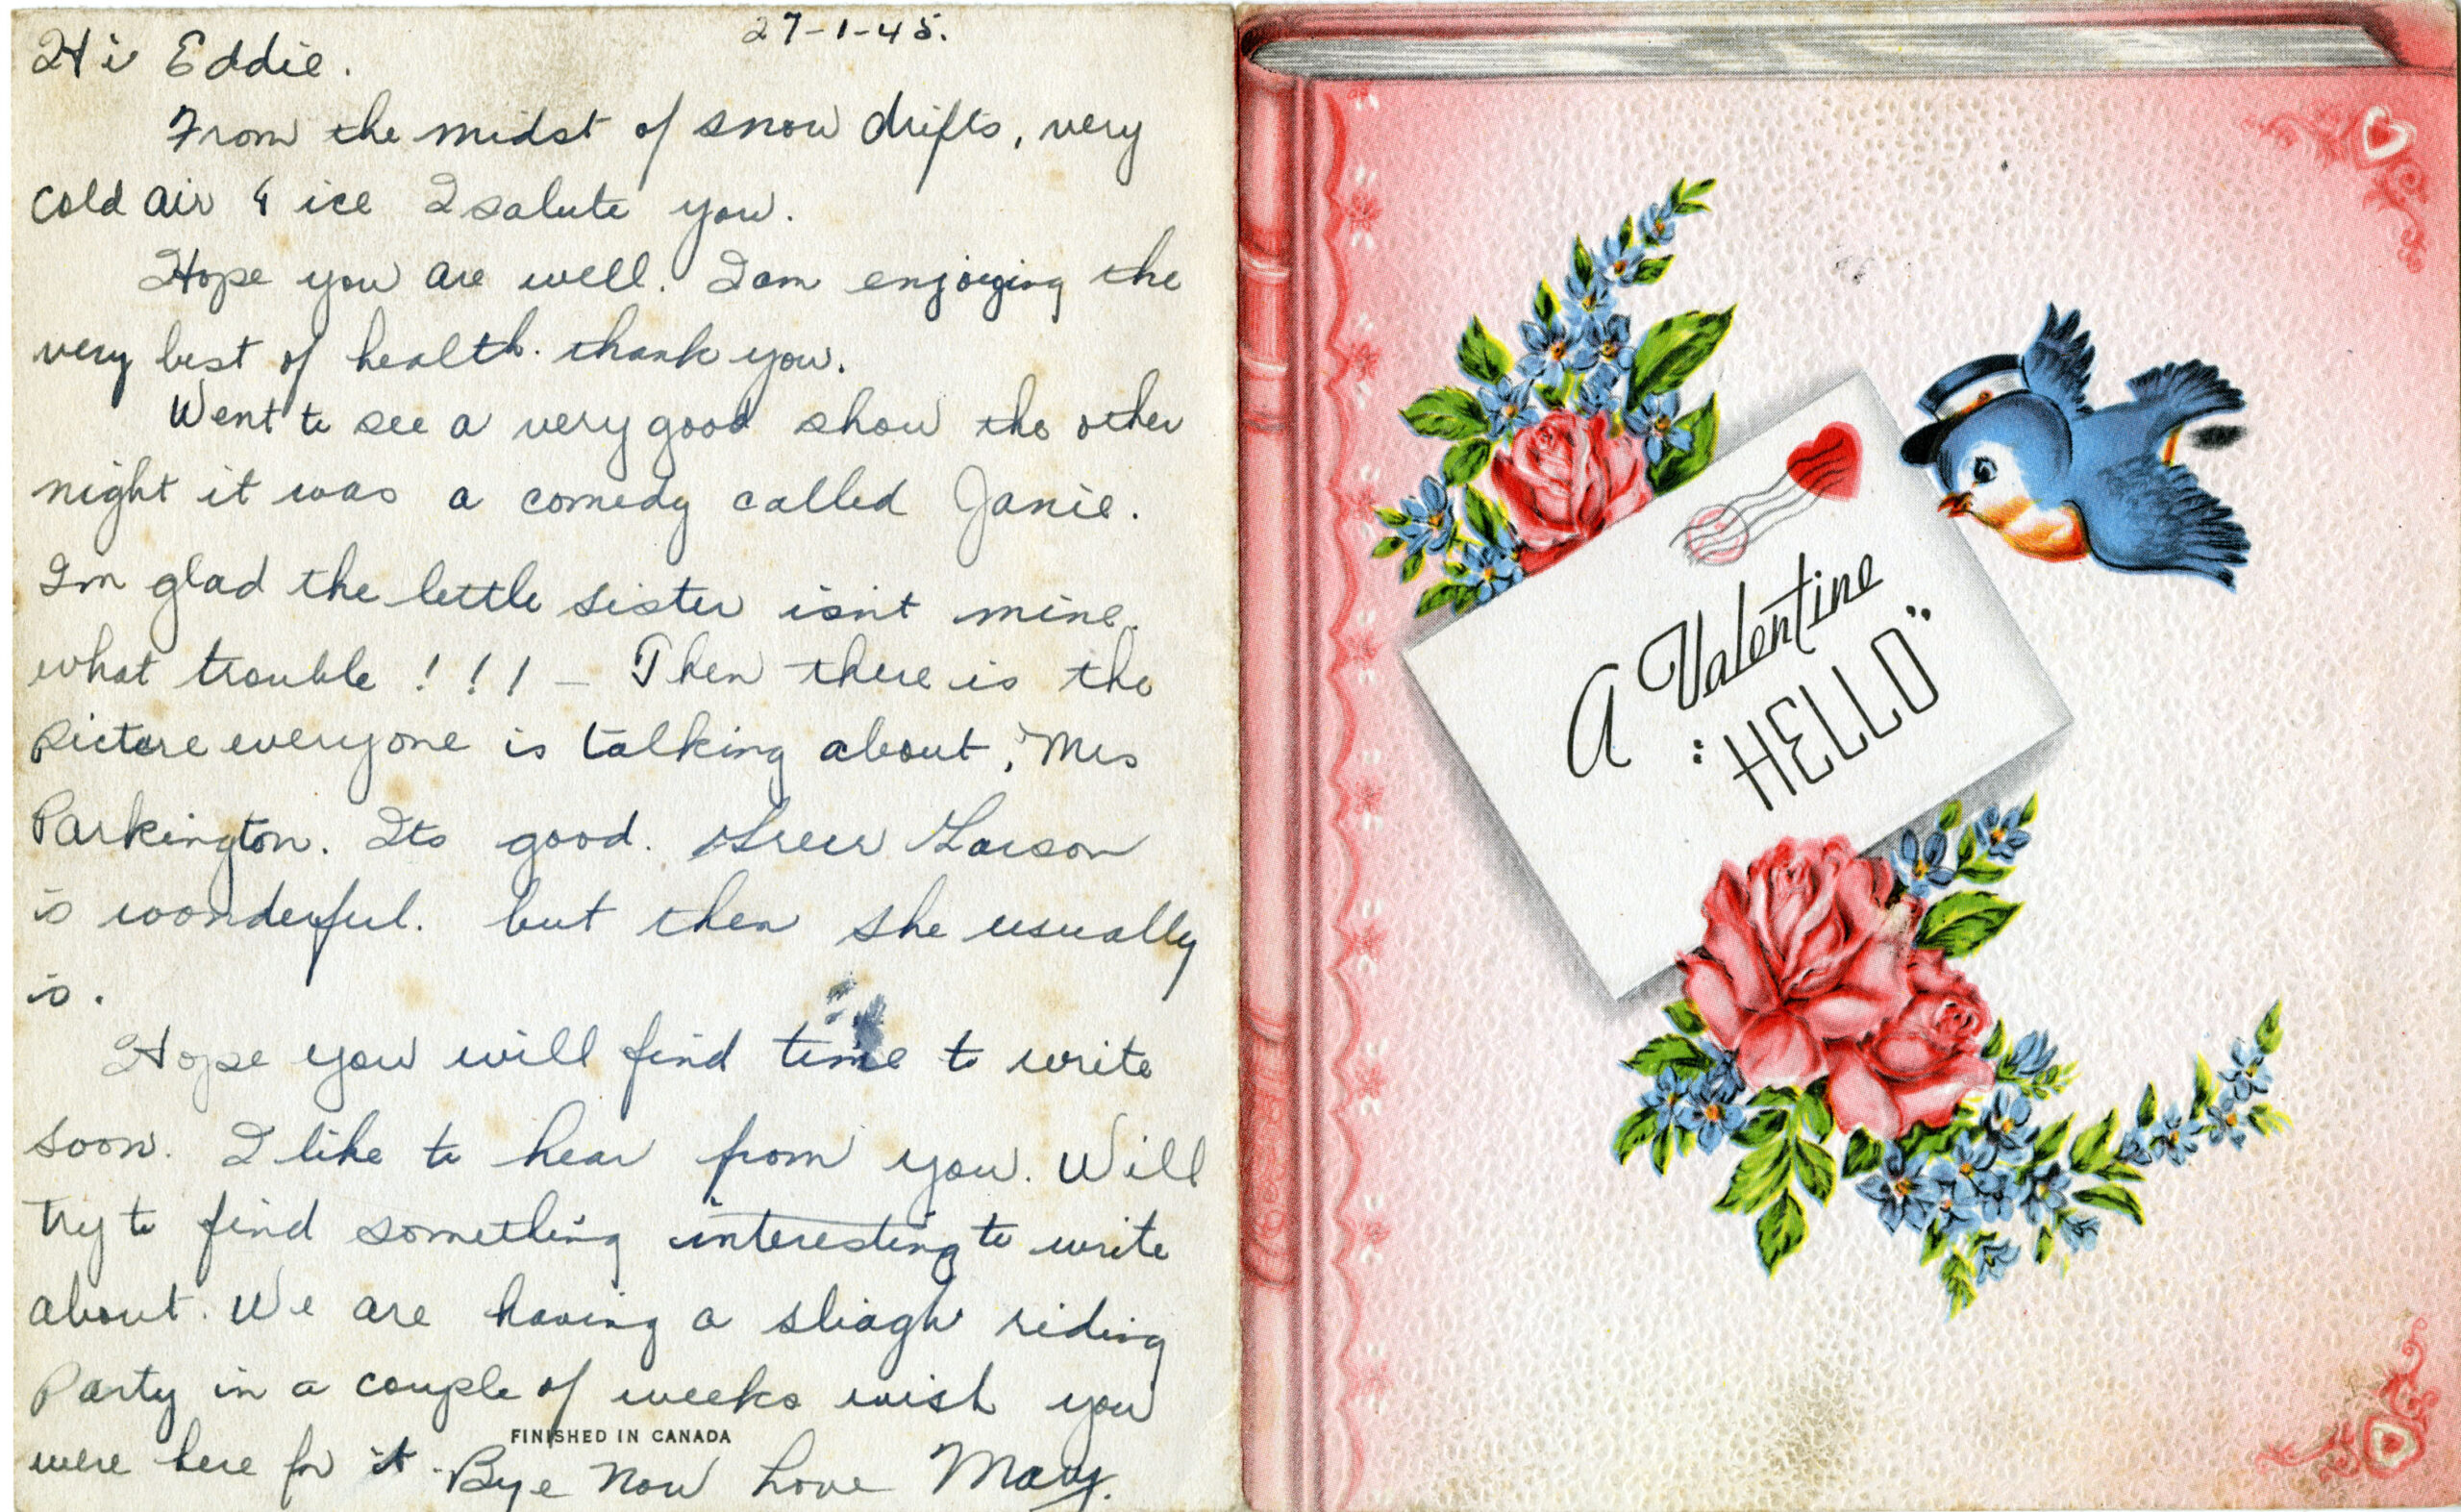 27-1-45.
Hi Eddie.
From the midst of snow drifts, very
cold air & ice I salute you.
Hope you are well. I am enjoying the
very best of health. thank you.
Went to see a very good show the other
night it was a comedy called Janie.
Im glad the little sister isn't mine.
what trouble ! ! ! – Then there is the
picture everyone is talking about, "Mrs
Parkington. Its good. Greer Garson
is wonderful. but then she usually
is.
Hope you will find time to write
soon. I like to hear from you. Will
try to find something interesting to write
about. We are having a sliagh riding
Party in a couple of weeks wish you
were here for it. Bye Now Love Mary.
FINISHED IN CANADA
A Valentine
"HELLO"